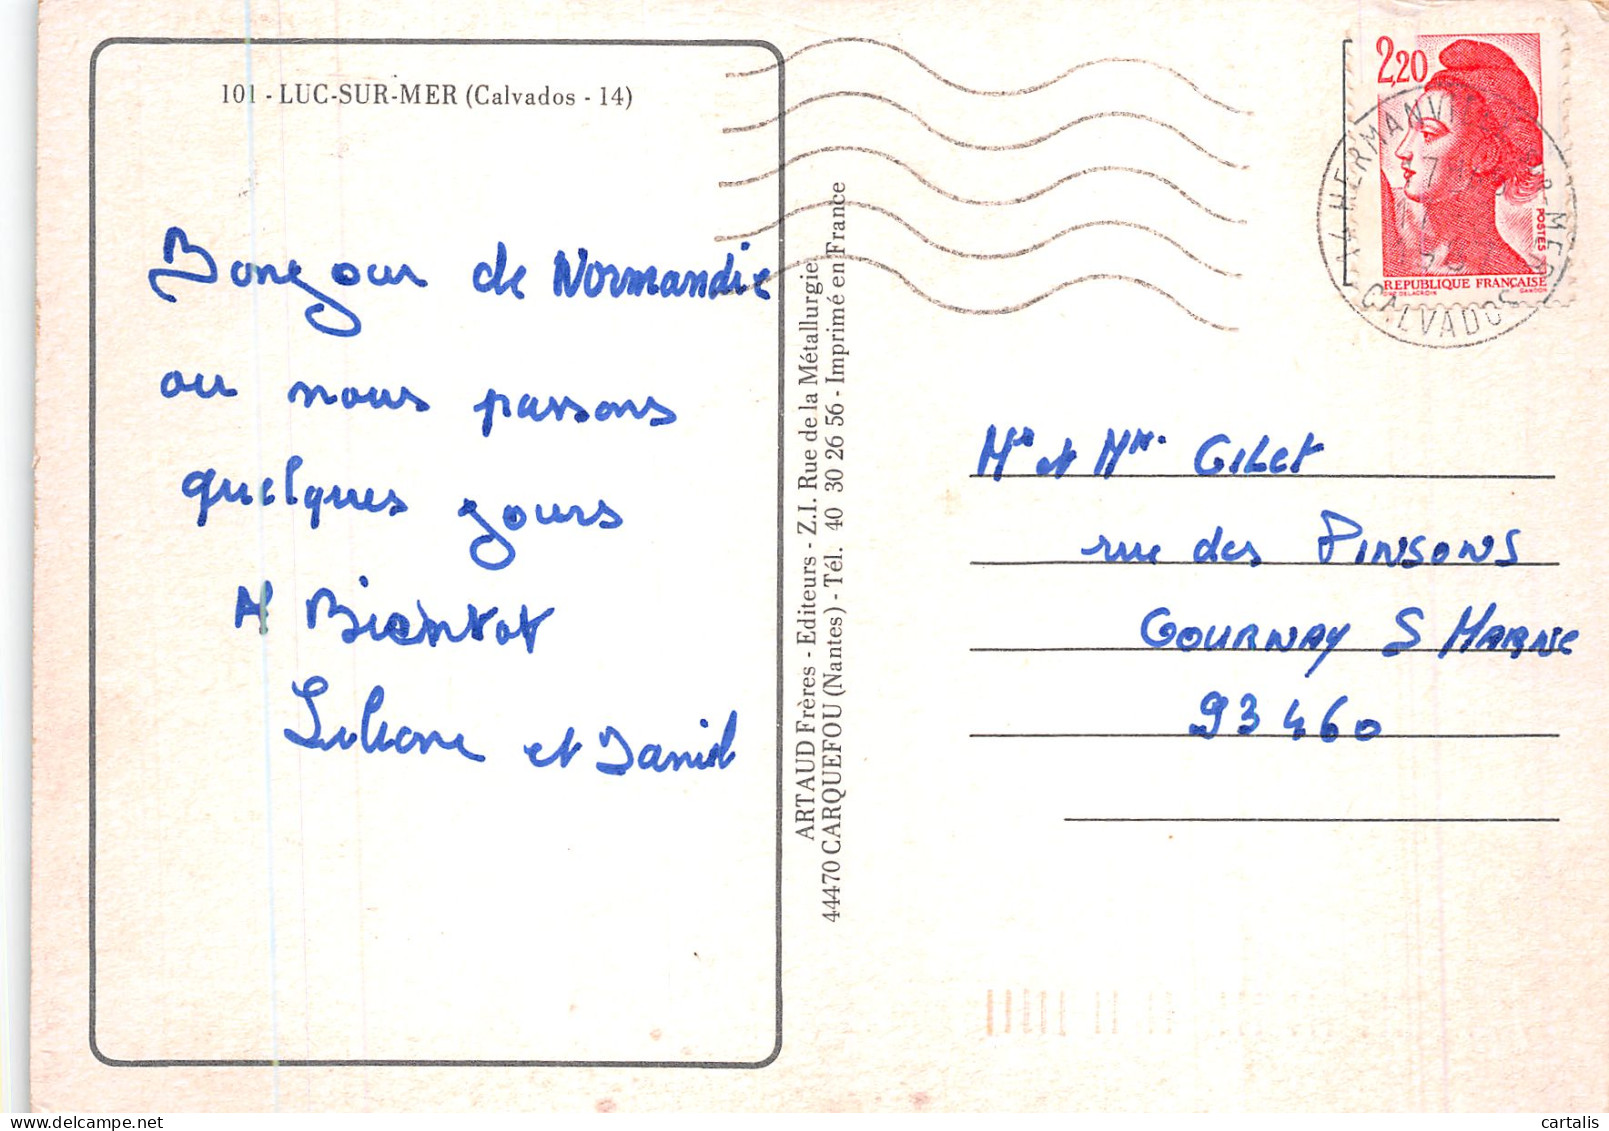 101 - LUC-SUR-MER (Calvados - 14)
Bonjour de Normandie
ou nous passons
quelques jours
A Bientot
Liliane et Daniel
ARTAUD Frères - Editeurs - Z.I. Rue de la Métallurgie
44470 CARQUEFOU (Nantes) - Tél. 40 30 26 56 - Imprimé en France
2,20
POSTES
REPUBLIQUE FRANÇAISE
GANDON
14 HERMANVILLE SUR MER
CALVADOS
Mr et Mme GILET
rue des PINSONS
GOURNAY S MARNE
93460
delcampe.net
cartalis